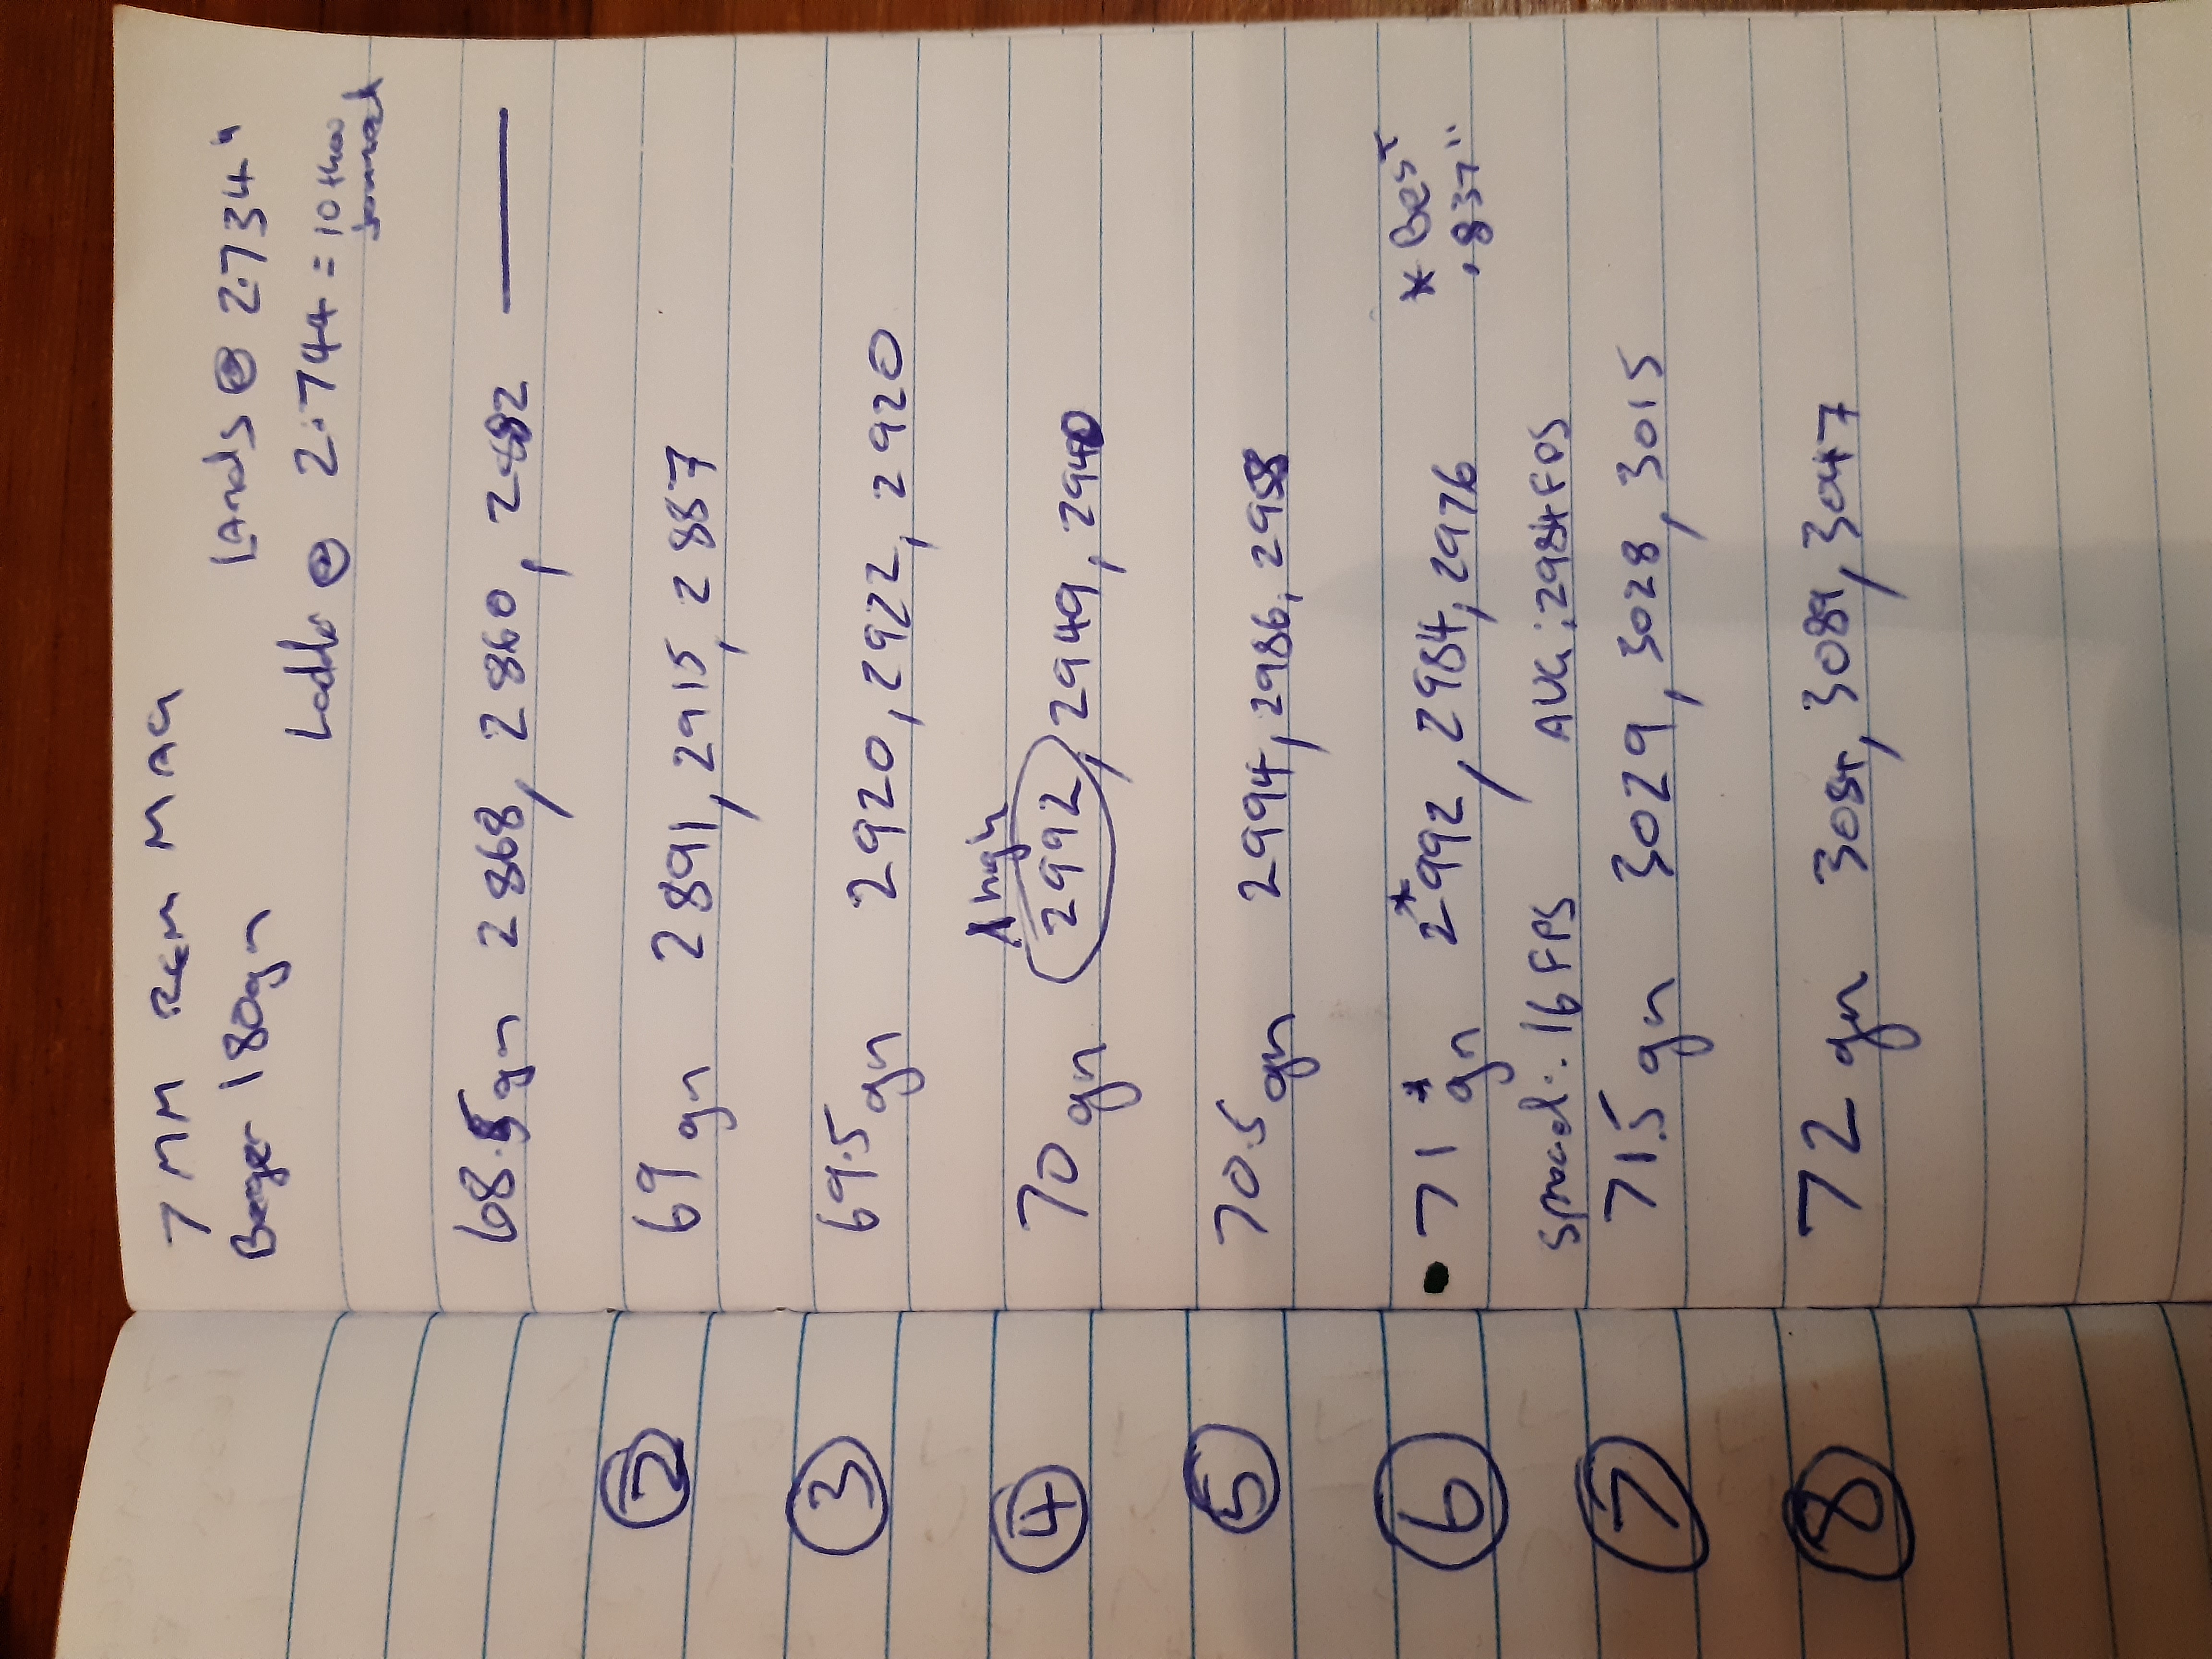 7 MM REM MAG
Berger 180gn
Lands @ 2.734"
Ladder @ 2.744 = 10 thou
jammed
68.5gn 2868, 2860, 2882 —
② 69gn 2891, 2915, 2887
③ 69.5gn 2920, 2922, 2920
1 high
④ 70gn 2992, 2949, 2940
⑤ 70.5gn 2994, 2986, 2958
⑥ • 71*gn 2*992, 2984, 2976 * Best
.837"
spread: 16 FPS AVG: 2984 FPS
⑦ 71.5gn 3029, 3028, 3015
⑧ 72gn 3084, 3089, 3047